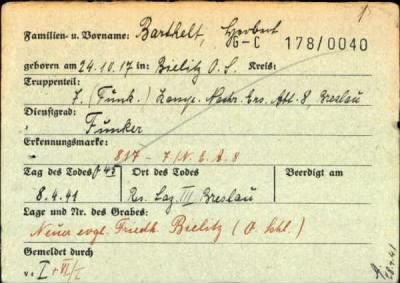 1
Familien- u. Vorname: Barthelt, Herbert
G-C 178/0040
geboren am 24.10.17 in: Bielitz O.S. Kreis:
Truppenteil:
7. (Funk.) Komp. Nachr. Ers. Abt. 8 Breslau
Dienstgrad:
Funker
Erkennungsmarke:
817 - 7/N.E.A.8
Tag des Todes Ort des Todes Beerdigt am
8.4.41 Res. Laz. III Breslau
Lage und Nr. des Grabes:
Neuer evgl. Friedh. Bielitz (O. Schl.)
Gemeldet durch
I + VI/I